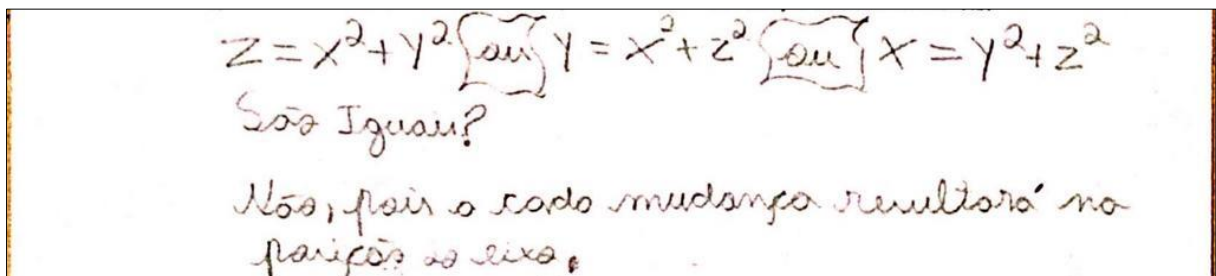 Z = X² + Y² ou Y = X² + Z² ou X = Y² + Z²
São Iguais?
Não, pois a cada mudança resultará na
posição do eixo.